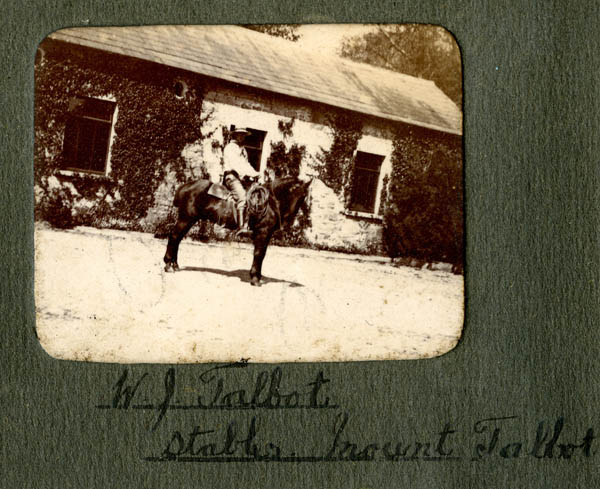 W. J Talbot.
Stables. Mount Talbot